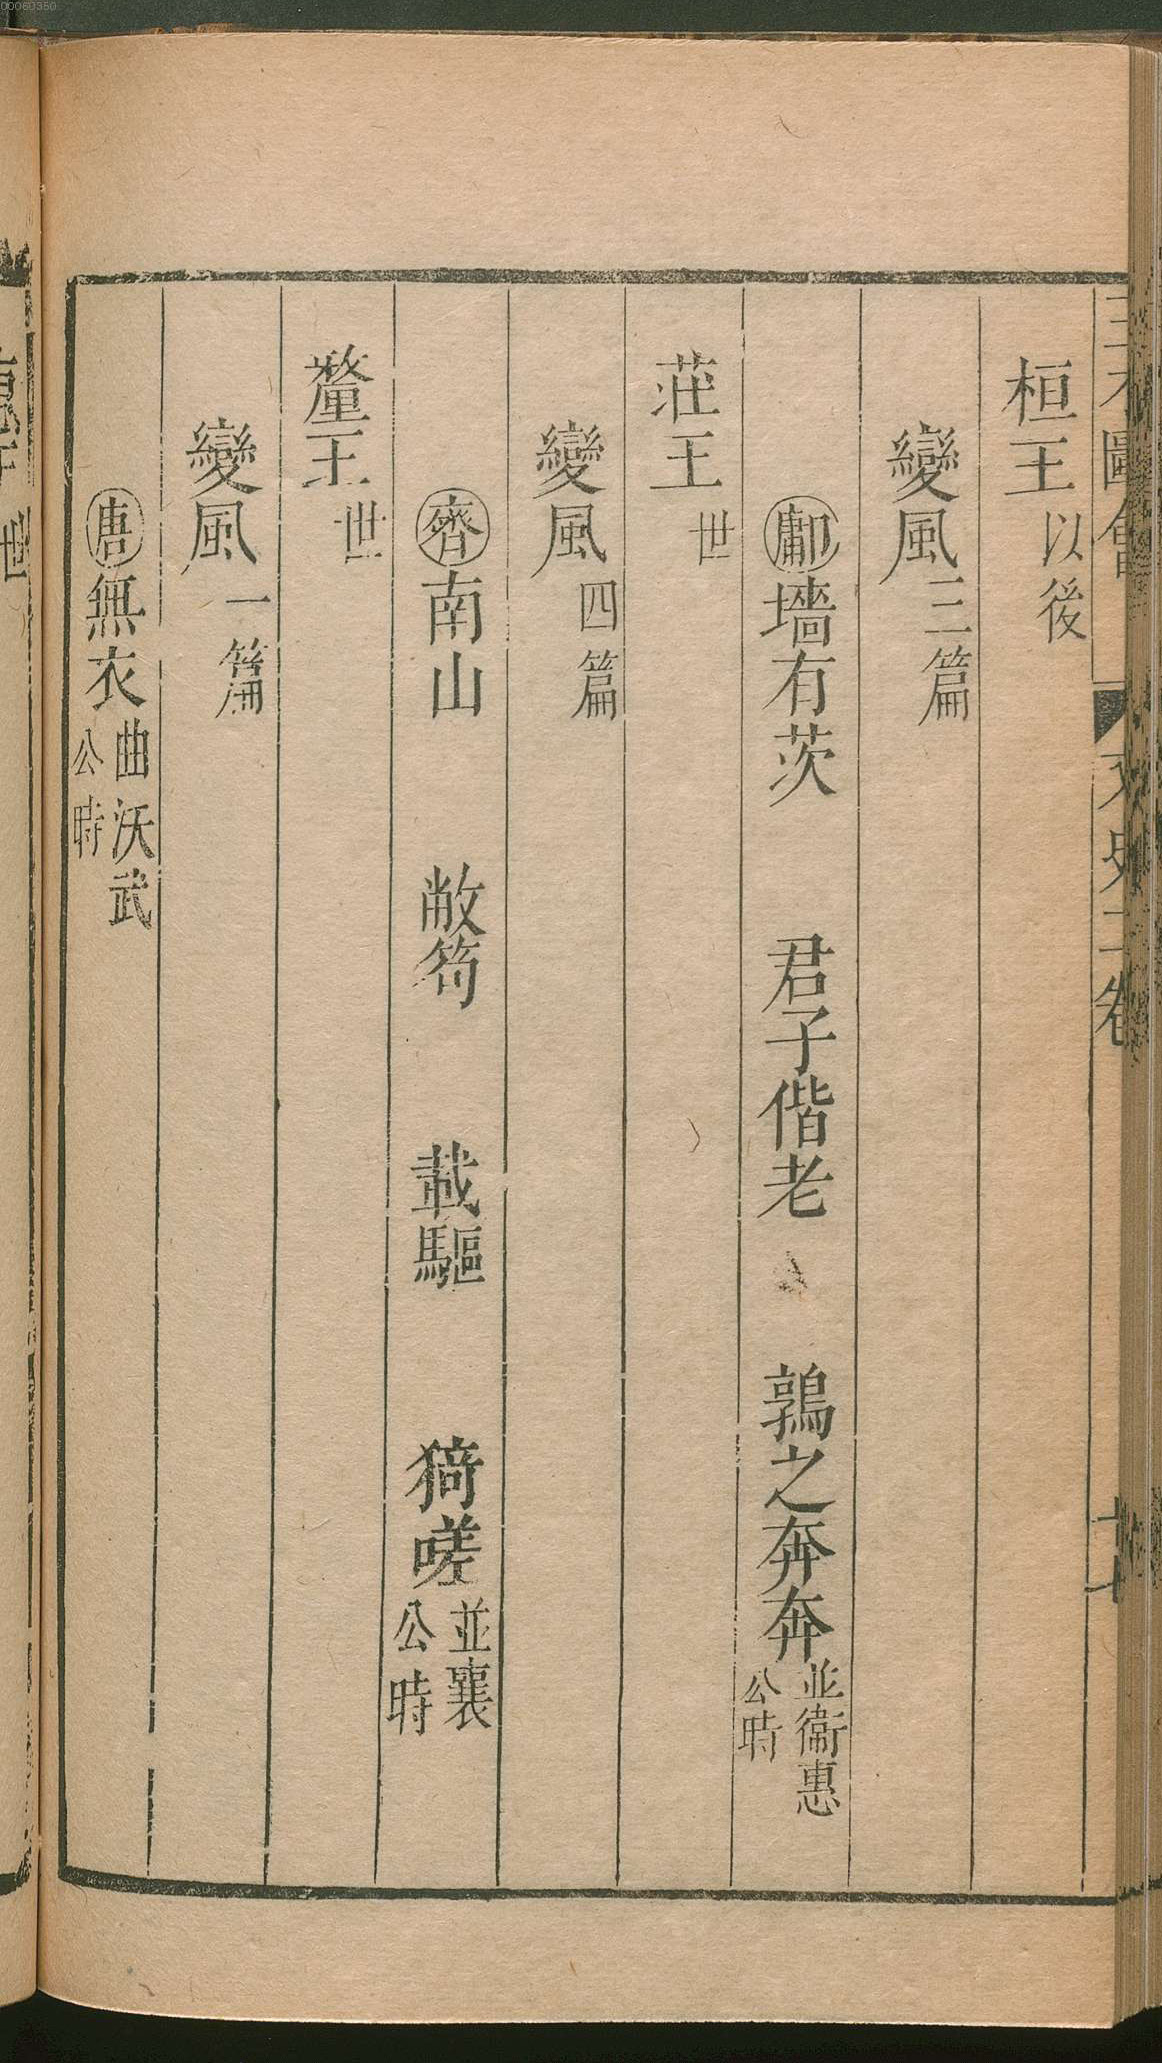 00060350
三才圖會 文史二卷
桓王以後
變風三篇
鄘墻有茨 君子偕老 鶉之奔奔並衞惠公時
莊王世
變風四篇
齊南山 敝笱 載驅 猗嗟並襄公時
釐王世
變風一篇
唐無衣曲沃武公時